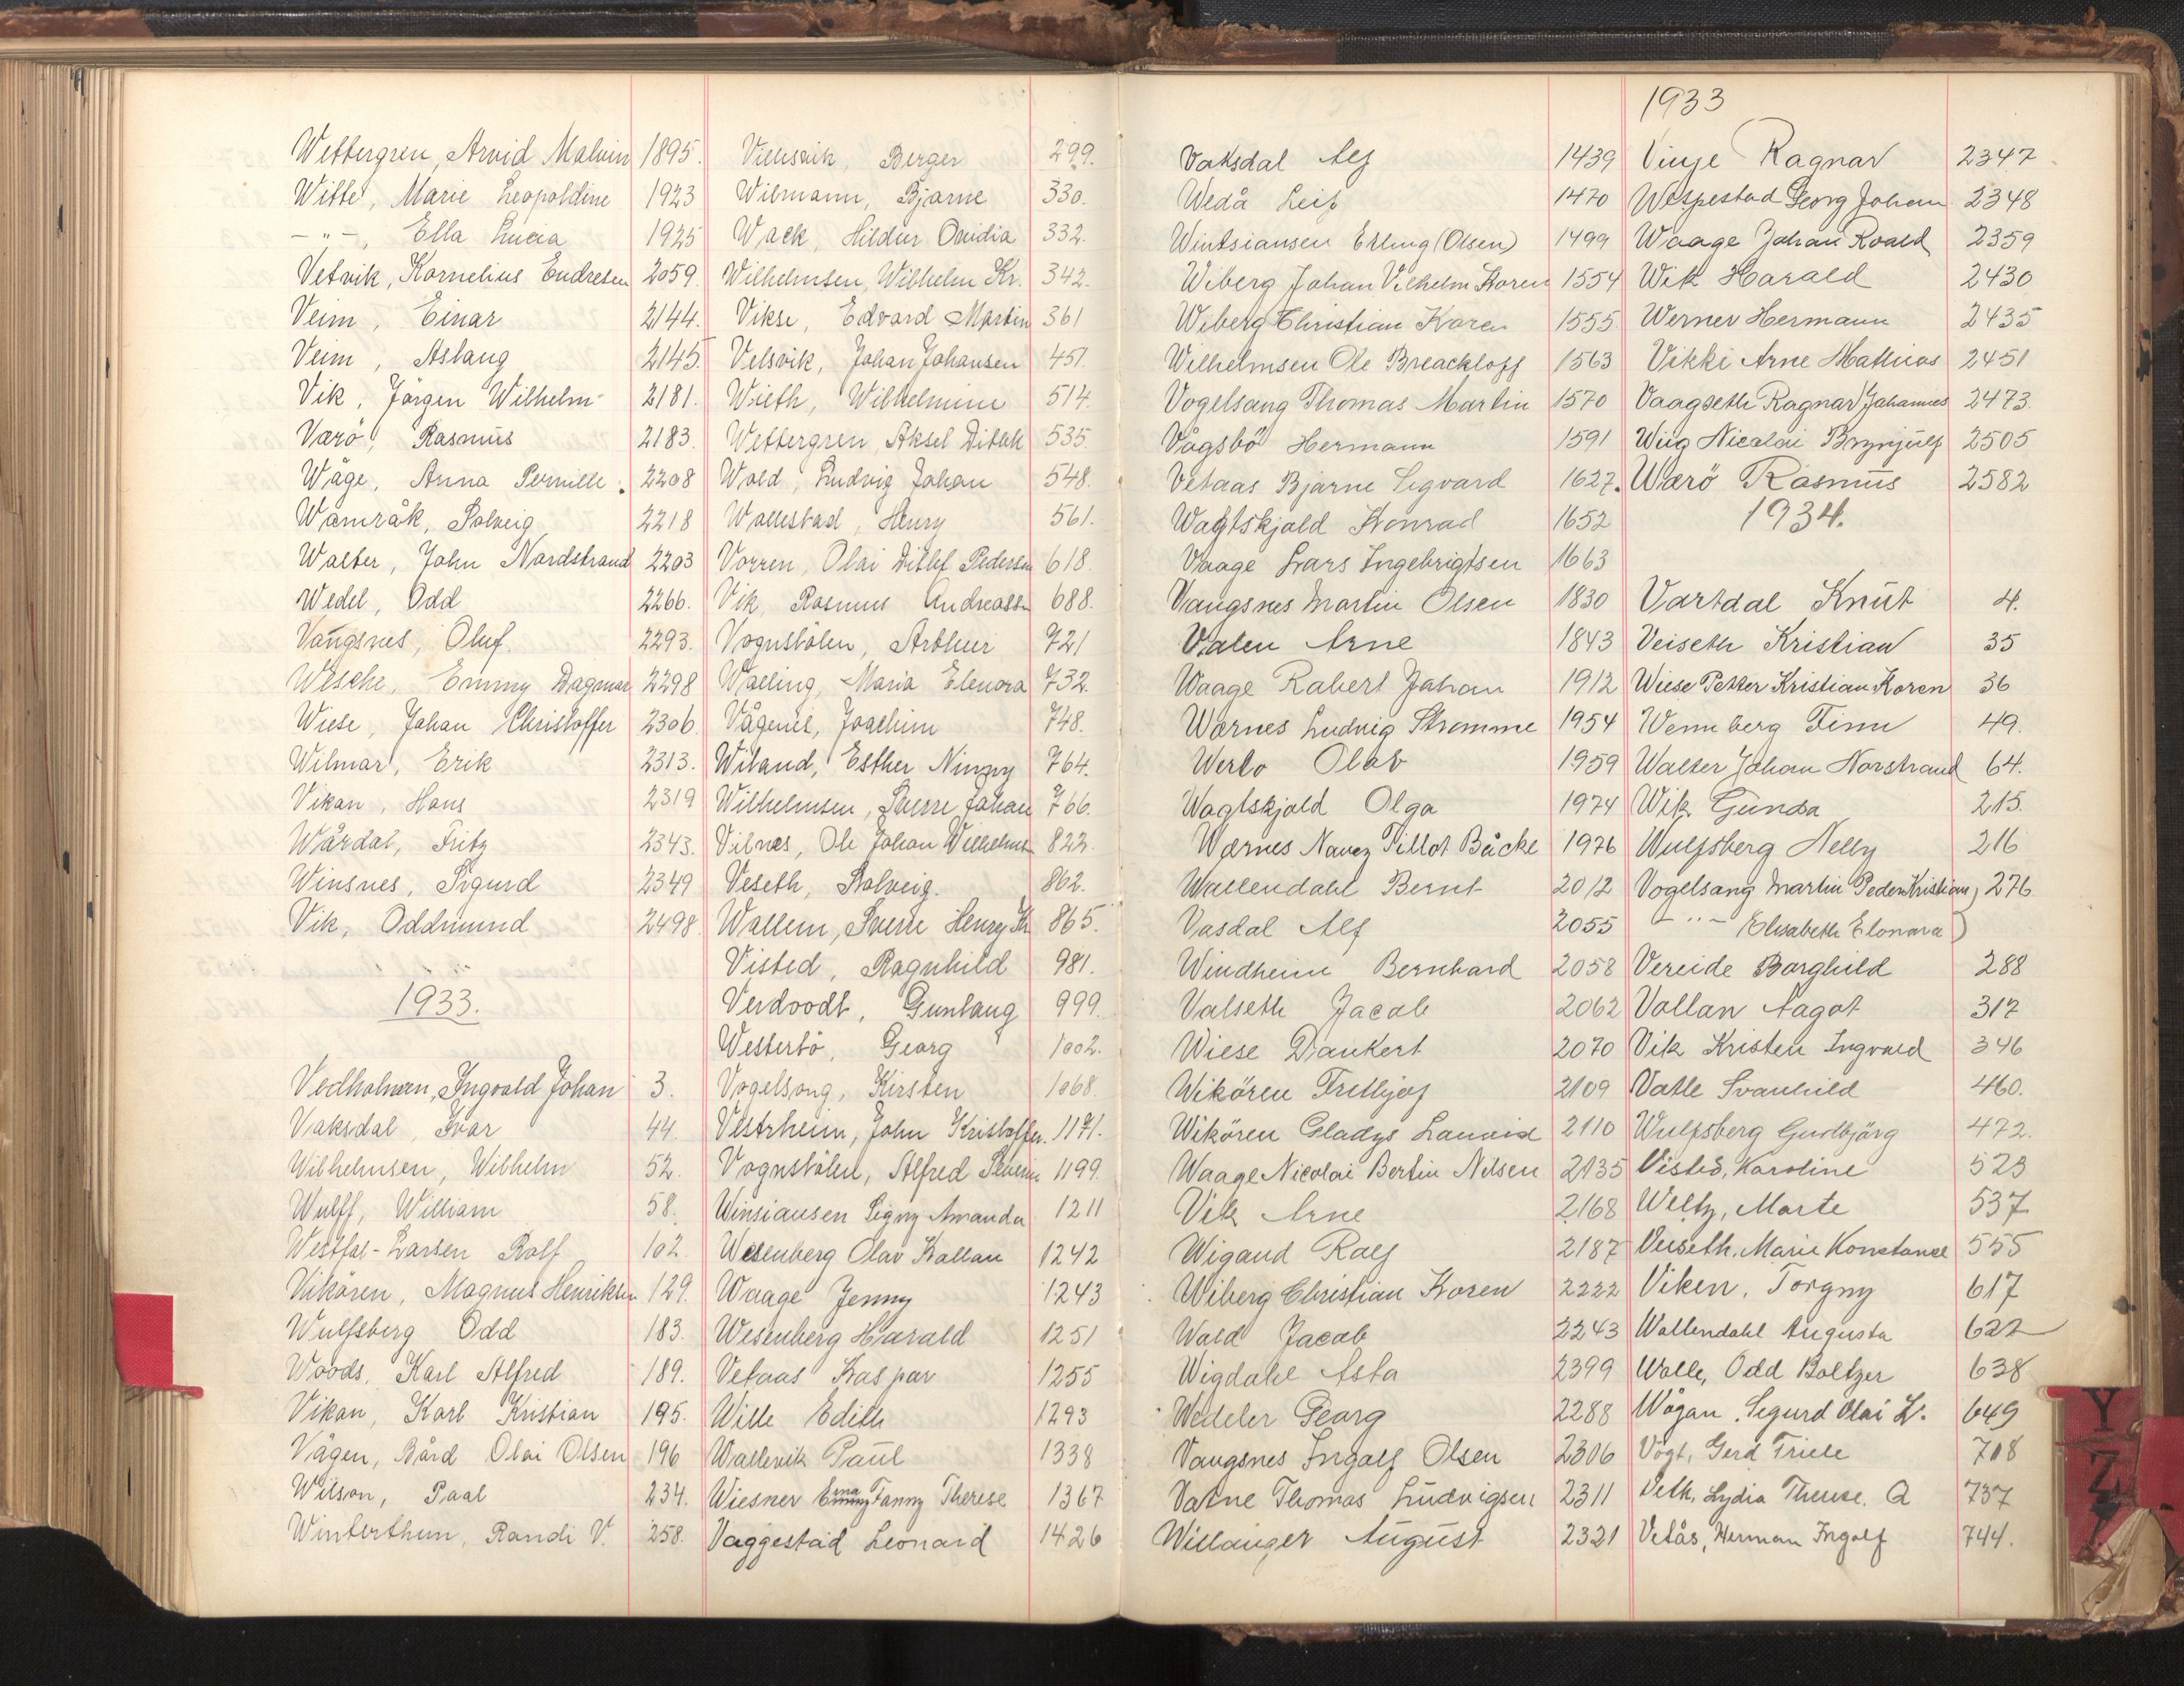 Wettergren, Arvid Malvin 1895.
Witte, Marie Leopoldine 1923
-"-, Ella Lucia 1925
Vetvik, Kornelius Endresen 2059.
Veim, Einar 2144.
Veim, Aslaug 2145.
Vik, Jörgen Wilhelm 2181.
Værö, Rasmus 2183.
Wåge, Anna Pernille. 2208
Wamråk, Solveig 2218
Walter, John Nordstrand 2203
Wedel, Odd 2266.
Vangsnes, Oluf. 2293.
Wesche, Emmy Dagmar 2298
Wiese, Johan Christoffer 2306
Wilmar, Erik 2313.
Vikan, Hans 2319
Wårdal, Fritz 2343.
Winsnes, Sigurd 2349
Vik, Oddmund 2498.
1933.
Vedholmen, Ingvald Johan 3.
Vaksdal, Ivar 44.
Wilhelmsen, Wilhelm 52.
Wulff, William 58.
Westfal-Larsen Rolf 102
Vikören, Magnus Henriksen 129.
Wulfsberg Odd 183.
Woods, Karl Alfred 189.
Vikan, Karl Kristian 195.
Vågen, Bård Olai Olsen 196
Wilson, Paal 234.
Winterthun, Randi V. 258.
Berger 299.
Wilmann, Bjarne 330.
Wack, Hildur Ovidia 332.
Wilhelmsen, Wilhelm Kr. 342.
Vikse, Edvard Martin 361
Velsvik, Johan Johansen 451.
Wieth, Wilhelmine 514.
Wettergren, Aksel Ditlef 535.
Wold, Ludvig Johan 548.
Wallestad, Henry 561.
Vorren, Olai Ditlef Pedersen 618.
Vik, Rasmus Andreassn 688.
Vognstölen, Arthur 721
Walling, Maria Elenora 732.
Vågenes, Joachim 748.
Wiland, Esther Ninny 764.
Wilhelmsen, Sverre Johan 766.
Vilnes, Ole Johan Wilhelmsn 822.
Veseth, Solveig. 862.
Wallem, Sverre Henry Kr 865.
Visted, Ragnhild 981.
Verdoodt, Gunlaug 999.
Westerbö, Georg 1002.
Vogelsang, Kirsten 1068.
Vestrheim, John Kristoffer. 1171.
Vognstölen, Alfred Severin 1199.
Winsiansen Signy Amanda 1211
Wesenberg Olav Kallan 1242
Waage Jenny 1243
Wesenberg Harald 1251
Vetaas Kaspar 1255
Wille Edith 1293
Wallevik Paul 1338
Wiesner Erna Fanny Therese 1367
Vaggestad Leonard 1426
Vaksdal Alf 1439
Wedå Leif 1470
Wintsiansen Erling (Olsen) 1499
Wiberg Johan Vilhelm Koren 1554
Wiberg Christian Koren 1555
Wilhelmsen Ole Breackloff 1563
Vogelsang Thomas Martin 1570
Vågsbö Hermann 1591
Vetaas Bjarne Sigvard 1627.
Wagtskjold Konrad 1652
Vaage Lars Ingebrigtsen 1663
Vangsnes Martin Olsen 1830
Valen Arne 1843
Waage Robert Johan 1912
Wornes Ludvig Stromme 1954
Werlo Olav 1959
Wagtskjold Olga 1974
Wærnes Navez Tillot Bücke 1976
Wallendahl Bernt 2012
Vasdal Alf 2055
Windheim Bernhard 2058
Valseth Jacob 2062
Wiese Dankert 2070
Wikören Frithjof 2109
Wikören Gladys Lauvid 2110
Waage Nicolai Bertin Nilsen 2135
Vik Arne 2168
Wigand Ralf 2187
Wiberg Christian Koren 2222
Wold Jacob 2243
Wigdahl Asta 2399
Wedeler Georg 2288
Vangsnes Ingolf Olsen 2306
Vatne Thomas Ludvigsen 2311
Willanger August 2321
1933
Vinje Ragnar 2347
Wespestad Georg Johan 2348
Waage Johan Roald 2359
Wik Harald 2430
Werner Hermann 2435
Vikki Arne Mathias 2451
Vaagseth Ragnar Johannes 2473.
Wiig Nicolai Brynjulf 2505
Wærö Rasmus 2582
1934.
Vartdal Knut 4.
Veiseth Kristian 35
Wiese Petter Kristian Koren 36
Wennberg Finn 49.
Walter Johan Norstrand 64.
Wik Gunda 215.
Wulfsberg Nelly 216
Vogelsang Martin Peder Kristian, 276
-"- Elisabeth Elonora)
Vereide Borghild 288
Vollan Aagot 317
Vik Kristen Ingvald 346
Vatle Svanhild 460.
Wulfsberg Gudbjörg 472.
Visted, Karoline 523
Weltz, Marte 537
Veiseth, Marie Konstanse 555
Viken, Torgny 617
Wallendahl Augusta 622
Walle, Odd Boltzer 638
Vågan, Sigurd Olai L. 649
Vogt, Gerd Friele 708
Veth, Lydia Therese. A 737
Vetås, Herman Ingolf 744.
Y
Z